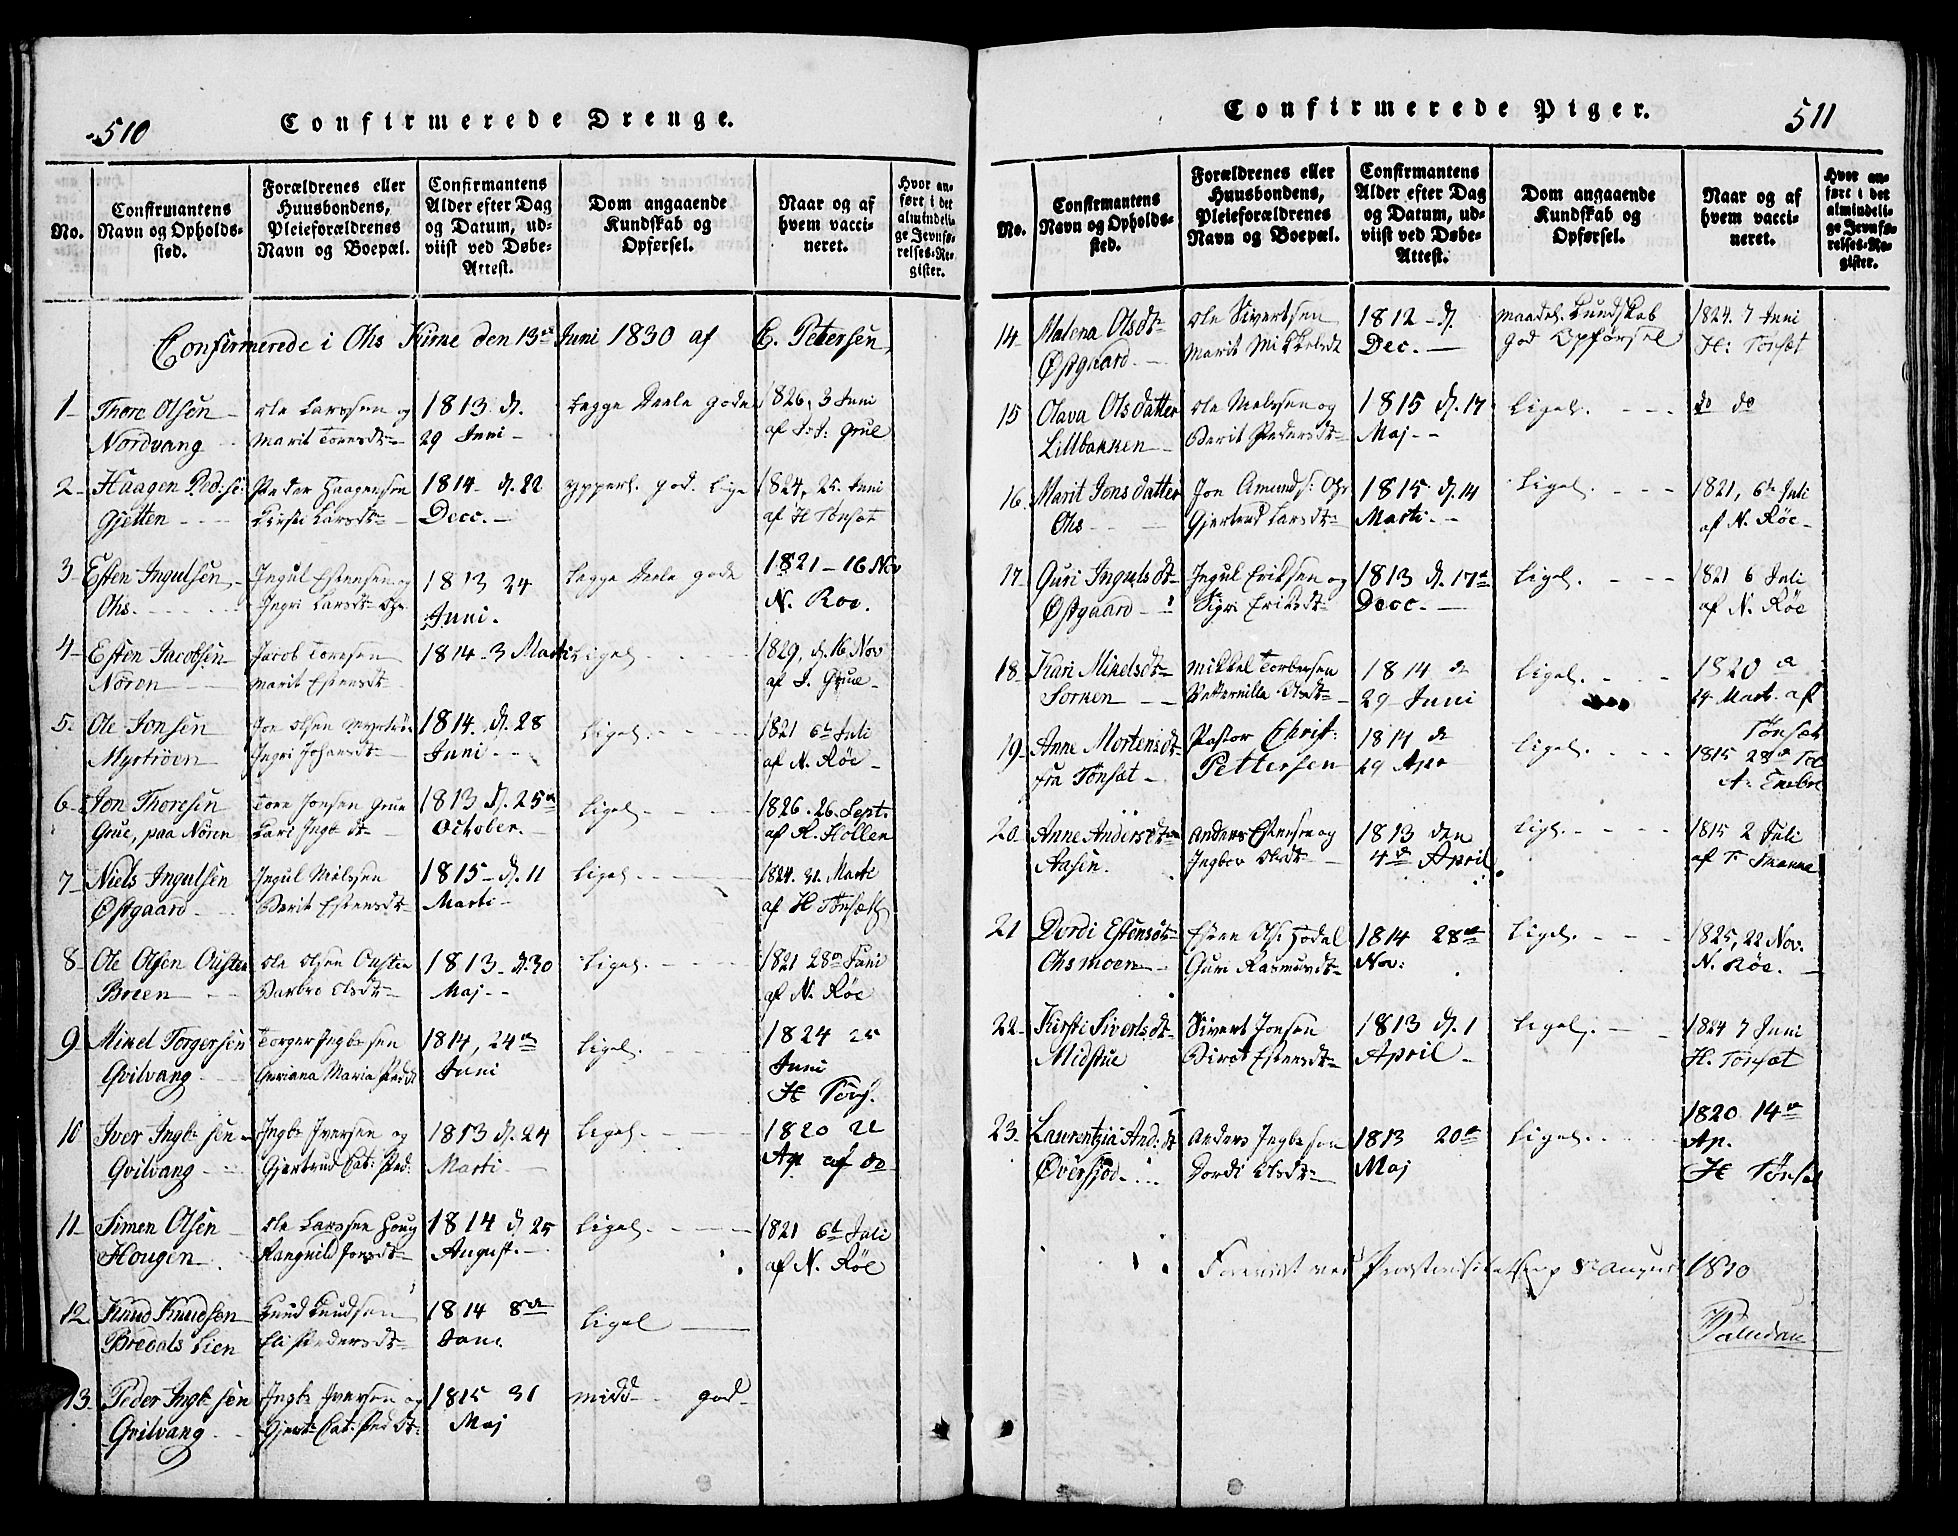 510
Confirmerede Drenge.
No.
Confirmantens
Navn og Opholds-
sted.
Forældrenes eller
Huusbondens,
Pleieforældrenes
Navn og Boepæl.
Confirmantens
Alder efter Dag
og Datum, ud-
viist ved Døbe-
Attest.
Dom angaaende
Kundskab og
Opførsel.
Naar og af
hvem vacci-
neret.
Hvor an-
ført i det
almindeli-
ge Jevnfø-
relses-Re-
gister.
Confirmerede i Ohs Kirne den 13de Juni 1830 af C. Petersen,
1
Thore Olsen
Nordvang
Ole Larssen og
Marit Toresdt
1813 d.
29 Juni
begge Deele gode
1826, 3 Juni
af Grue
2
Haagen Ped:se:
Gjetten
Peder Haagensen
Kirsti Larsdt
1814 d. 22
Dec.
ypperl. god. lige
1824, 25. Juni
af H Tønsæt
3
Esten Ingulsen
Ohs.
Ingul Estensen og
Ingri Larsdt Ohs
1813 24
Juni.
begge Deele gode
1821 - 16 Nov
N. Roe.
4
Esten Jacobsen
Noren
Jacob Toresen
Marit Estensdt
1814 3 Marti
Ligel.
1829, d. 16 Nov
af Grue
5.
Ole Jonsen
Myrtrøen
Jon Olsen Myrtrø
Ingri Johansdt
1814. d. 28
Juni
Ligel.
1821 6te Juli
af N. Røe
6
Jon Thoresen
Grue, paa Nøren
Tore Jonsen Grue
Kari Ingb dt
1813 d. 25de
October.
Ligel.
1826. 26. Sept.
af K. Hollen
7
Niels Ingulsen
Østgaard
Ingul Nilssen
Berit Estensdt
1815 d. 11
Marti
Ligel.
1824. 31. Marti
af H Tønsæth
8
Ole Olsen Ousten
Broen
Ole Olsen Ousten
Barbro Olsdt
1813 d. 30
Maj
Ligel.
1821 28de Juni
af N. Røe
9
Mikel Torgersen
Qvilvang
Torger Ingbrsen
Maria Pedsdt
1814, 24de
Juni
Ligel.
1824 25
Juni
H Tøns.
10
Iver Ingb: sen
Qvilvang
Ingb: Iversen og
Gjertrud Cat: Ped.
1813 d. 24
Marti
Ligel.
1820 22
Ap af do
11
Simen Olsen
Hougen
Ole Larssen Houg
Rangnild Jonsdt
1814 d. 25
August.
Ligel.
1821 6te Juli
af N. Røe
12
Knud Knudsen
Bredals Lien
Knud Knudsen
Eli Pedersdt
1814 8de
Jan.
Ligel
13
Peder Ingb: sen
Qvilvang
Ingb: Iversen og
Gjert: Cat: Ped dt
1815 31
Maj
midd god
Confirmerede Piger.
511
No.
Confirmantens
Navn og Opholds-
sted.
Forældrenes eller
Huusbondens,
Pleieforældrenes
Navn og Boepæl.
Confirmantens
Alder efter Dag
og Datum, ud-
viist ved Døbe-
Attest.
Dom angaaende
Kundskab og
Opførsel.
Naar og af
hvem vacci-
neret.
Hvor an-
ført i det
almindeli-
ge Jevnfø-
relses-Re-
gister.
14
Malena Olsdt
Østgaard
Ole Sivertsen
Marit Mikkelsdt
1812 d.
Dec.
maadel. Kundskab
god Opførsel
1824. 7 Juni
H: Tønsæt
15
Olava Olsdatter
Lillbakken
Ole Nelssen og
Berit Pedersdt
1815 d. 17
Maj
Ligel.
do do
16
Marit Jonsdatter
Ohs
Jon Amunds: Ohs
Gjertrud Larsdt
1815 d. 14
Marti
Ligel.
1821, 6te Juli
af N. Røe
17
Guri Ingulsdt
Østgaard
Ingul Eriksen og
Sigri Eriksdt
1813 d. 17de
Dec.
Ligel.
1821 6 Juli
af N. Røe
18
Kari Mikelsdt
Sornen
Mikkel Torbersen
Petternille Olsdt
1814 d
29 Juni
Ligel.
1820 d
24 Mart. af
Tønsæt
19
Anne Mortensdt
fra Tønsæt
Pastor Christ:
Pettersen
1814 d
29 Apr
Ligel.
1815 28de
20
Anne Andersdt
Aasen.
Anders Estensen og
Ingbor Olsdt
1813 den
4de April
Ligl.
1815 2 Juli
af T.
21
Dordi Estensdt
Ohsmoen
Esten Ols: Hodal
Guri Rasmusdt
1814 28de
Nov:
Ligel.
1825, 22 Nov.
N. Røe.
22
Kirsti Sivertsdt
Midstue
Sivert Jonsen
Biret Estensdt
1813 d. 1
April
Ligel.
1824 7 Juni
H. Tønsæt
23
Laurentzia And: dt
Øversjød
Anders Ingbrsen
Dordi Olsdt
1813 20de
Maj
Ligel.
1820 14de
Ap.
H Tønset
Foreviist ved Provstevisitatsen August 1830
Paludan